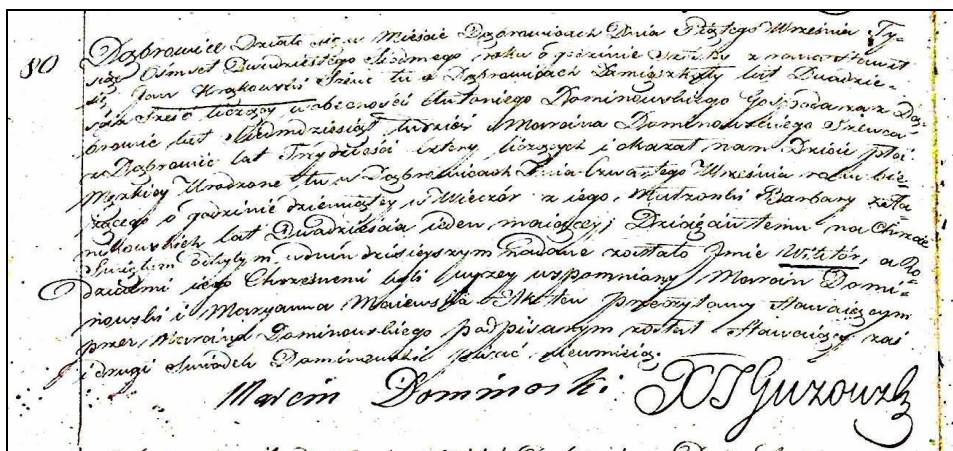 80 Dąbrowice Działo się w Mieście Dąbrowicach Dnia Piątego Września Ty-
siąc Ośmset Dwudziestego Siodmego roku o godzinie z rana Stawił
się Jan Krakowski Szewc tu w Dąbrowicach Zamieszkały lat Dwadzie-
ścia Sześć liczący w obecności Antoniego Dominowskiego Gospodarza z Dą-
browic lat Siedmdziesiąt tudzież Marcina Dominowskiego Szewca
z Dąbrowic lat Trzydzieści cztery liczących i okazał nam Dziecię płci
Męzkiey Urodzone tu w Dąbrowicach Dnia Czwartego Września roku bie-
żącego o godzinie dziewiątey w Wieczór z iego Małżonki Barbary
lat Dwadzieścia ieden maiącey; Dziecięciu temu na Chrzcie
Świętym odbytym w dniu dzisieyszym Nadane zostało Imie Wiktór, a Ro-
dzicami iego Chrzesnemi byli wyżey wspomniony Marcin Domi-
nowski i Maryanna Maiewska Akt ten przeczytany Stawaiącym
przez Marcina Dominowskiego podpisanym został Stawaiący zaś
i drugi Świadek Dominowski pisać nieumieią.
Marcin Dominoski